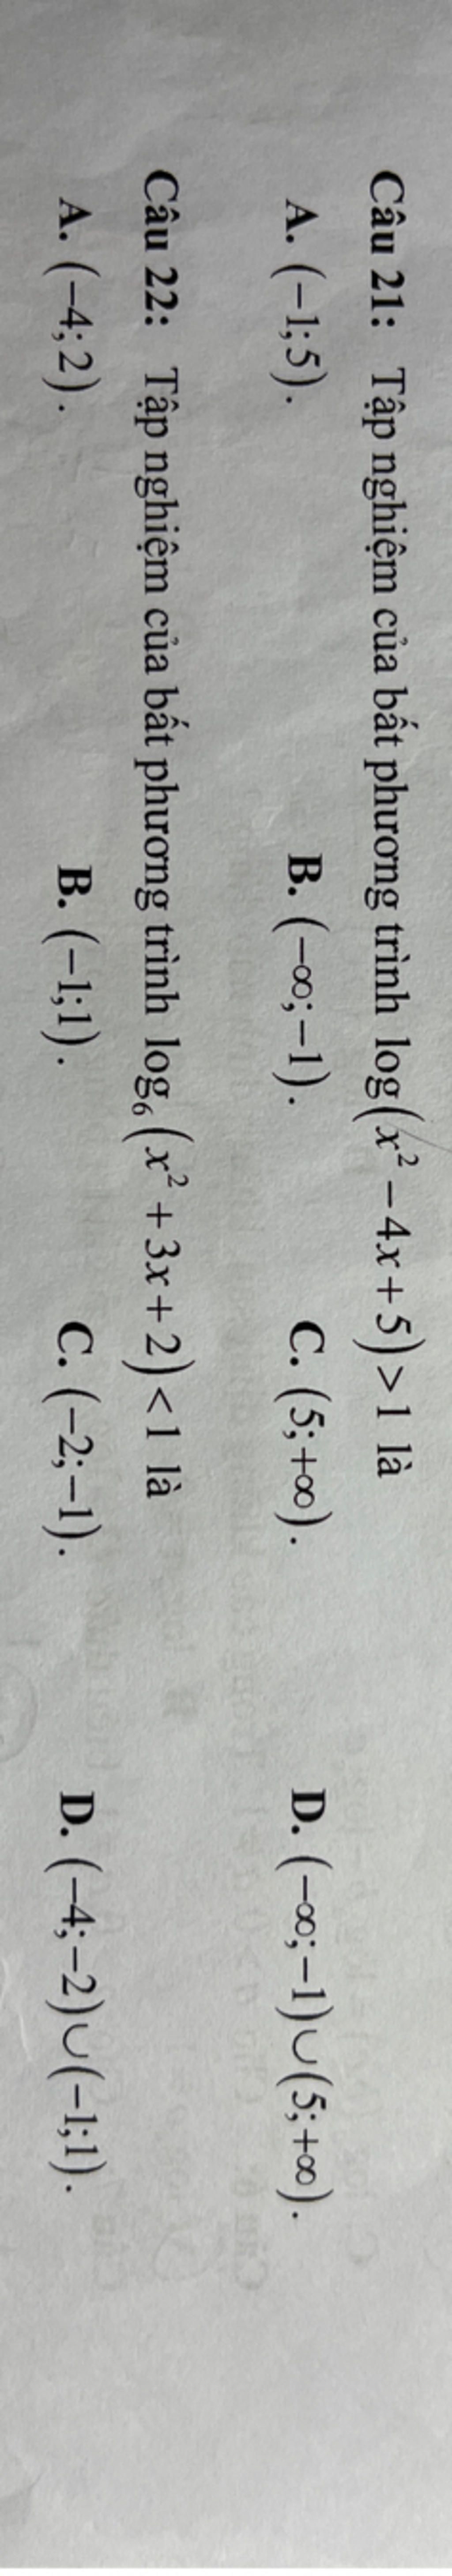 Câu 21: Tập nghiệm của bất phương trình log(x² − 4x + 5) > 1 là
A. (−1;5). B. (−∞;−1). C. (5;+∞). D. (−∞;−1)∪(5;+∞).
Câu 22: Tập nghiệm của bất phương trình log₆(x² + 3x + 2) < 1 là
A. (−4;2). B. (−1;1). C. (−2;−1). D. (−4;−2)∪(−1;1).